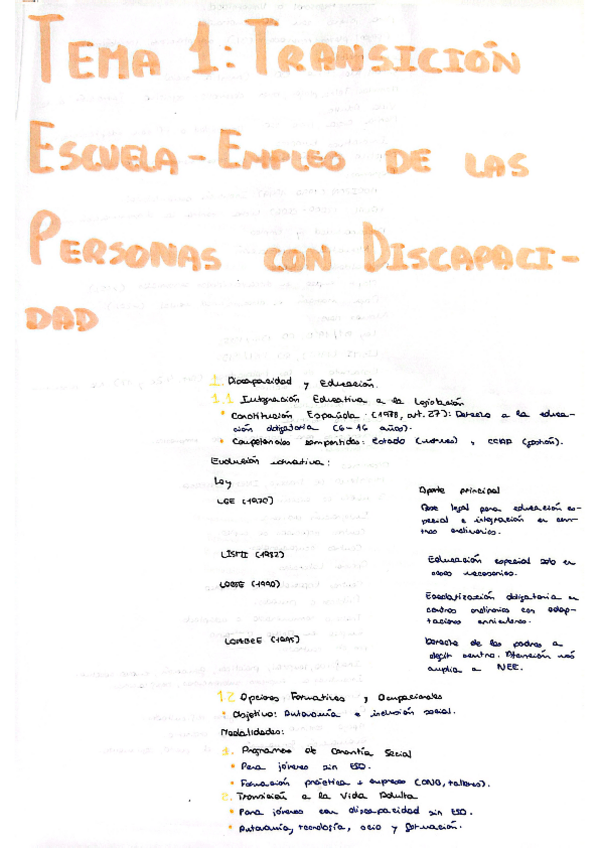 TEMA 1: TRANSICIÓN
ESCUELA - EMPLEO DE LAS
PERSONAS CON DISCAPACI-
DAD
1. Discapacidad y Educación.
1.1 Integración Educativa a la Legislación
• Constitución Española (1978, art. 27): Derecho a la educa-
ción obligatoria (6-16 años).
• Competencias compartidas: Estado (normas), CCAA (gestión).
Evolución educativa:
Ley
Aporte principal
LGE (1970)
Base legal para educación es-
pecial e integración en cen-
tros ordinarios.
LISMI (1982)
Educación especial solo en
casos necesarios.
LOGSE (1990)
Escolarización obligatoria en
centros ordinarios con adap-
taciones curriculares.
(1995)
Derecho de los padres a
elegir centro. Atención más
amplia a NEE.
1.2 Opciones Formativas y Ocupacionales
• Objetivo: Autonomía e inclusión social.
Modalidades:
1. Programas de Garantía Social
• Para jóvenes sin ESO.
• Formación práctica + empresa (ONG, talleres).
2. Transición a la Vida Adulta
• Para jóvenes con discapacidad sin ESO.
• Autonomía, tecnología, ocio y formación.